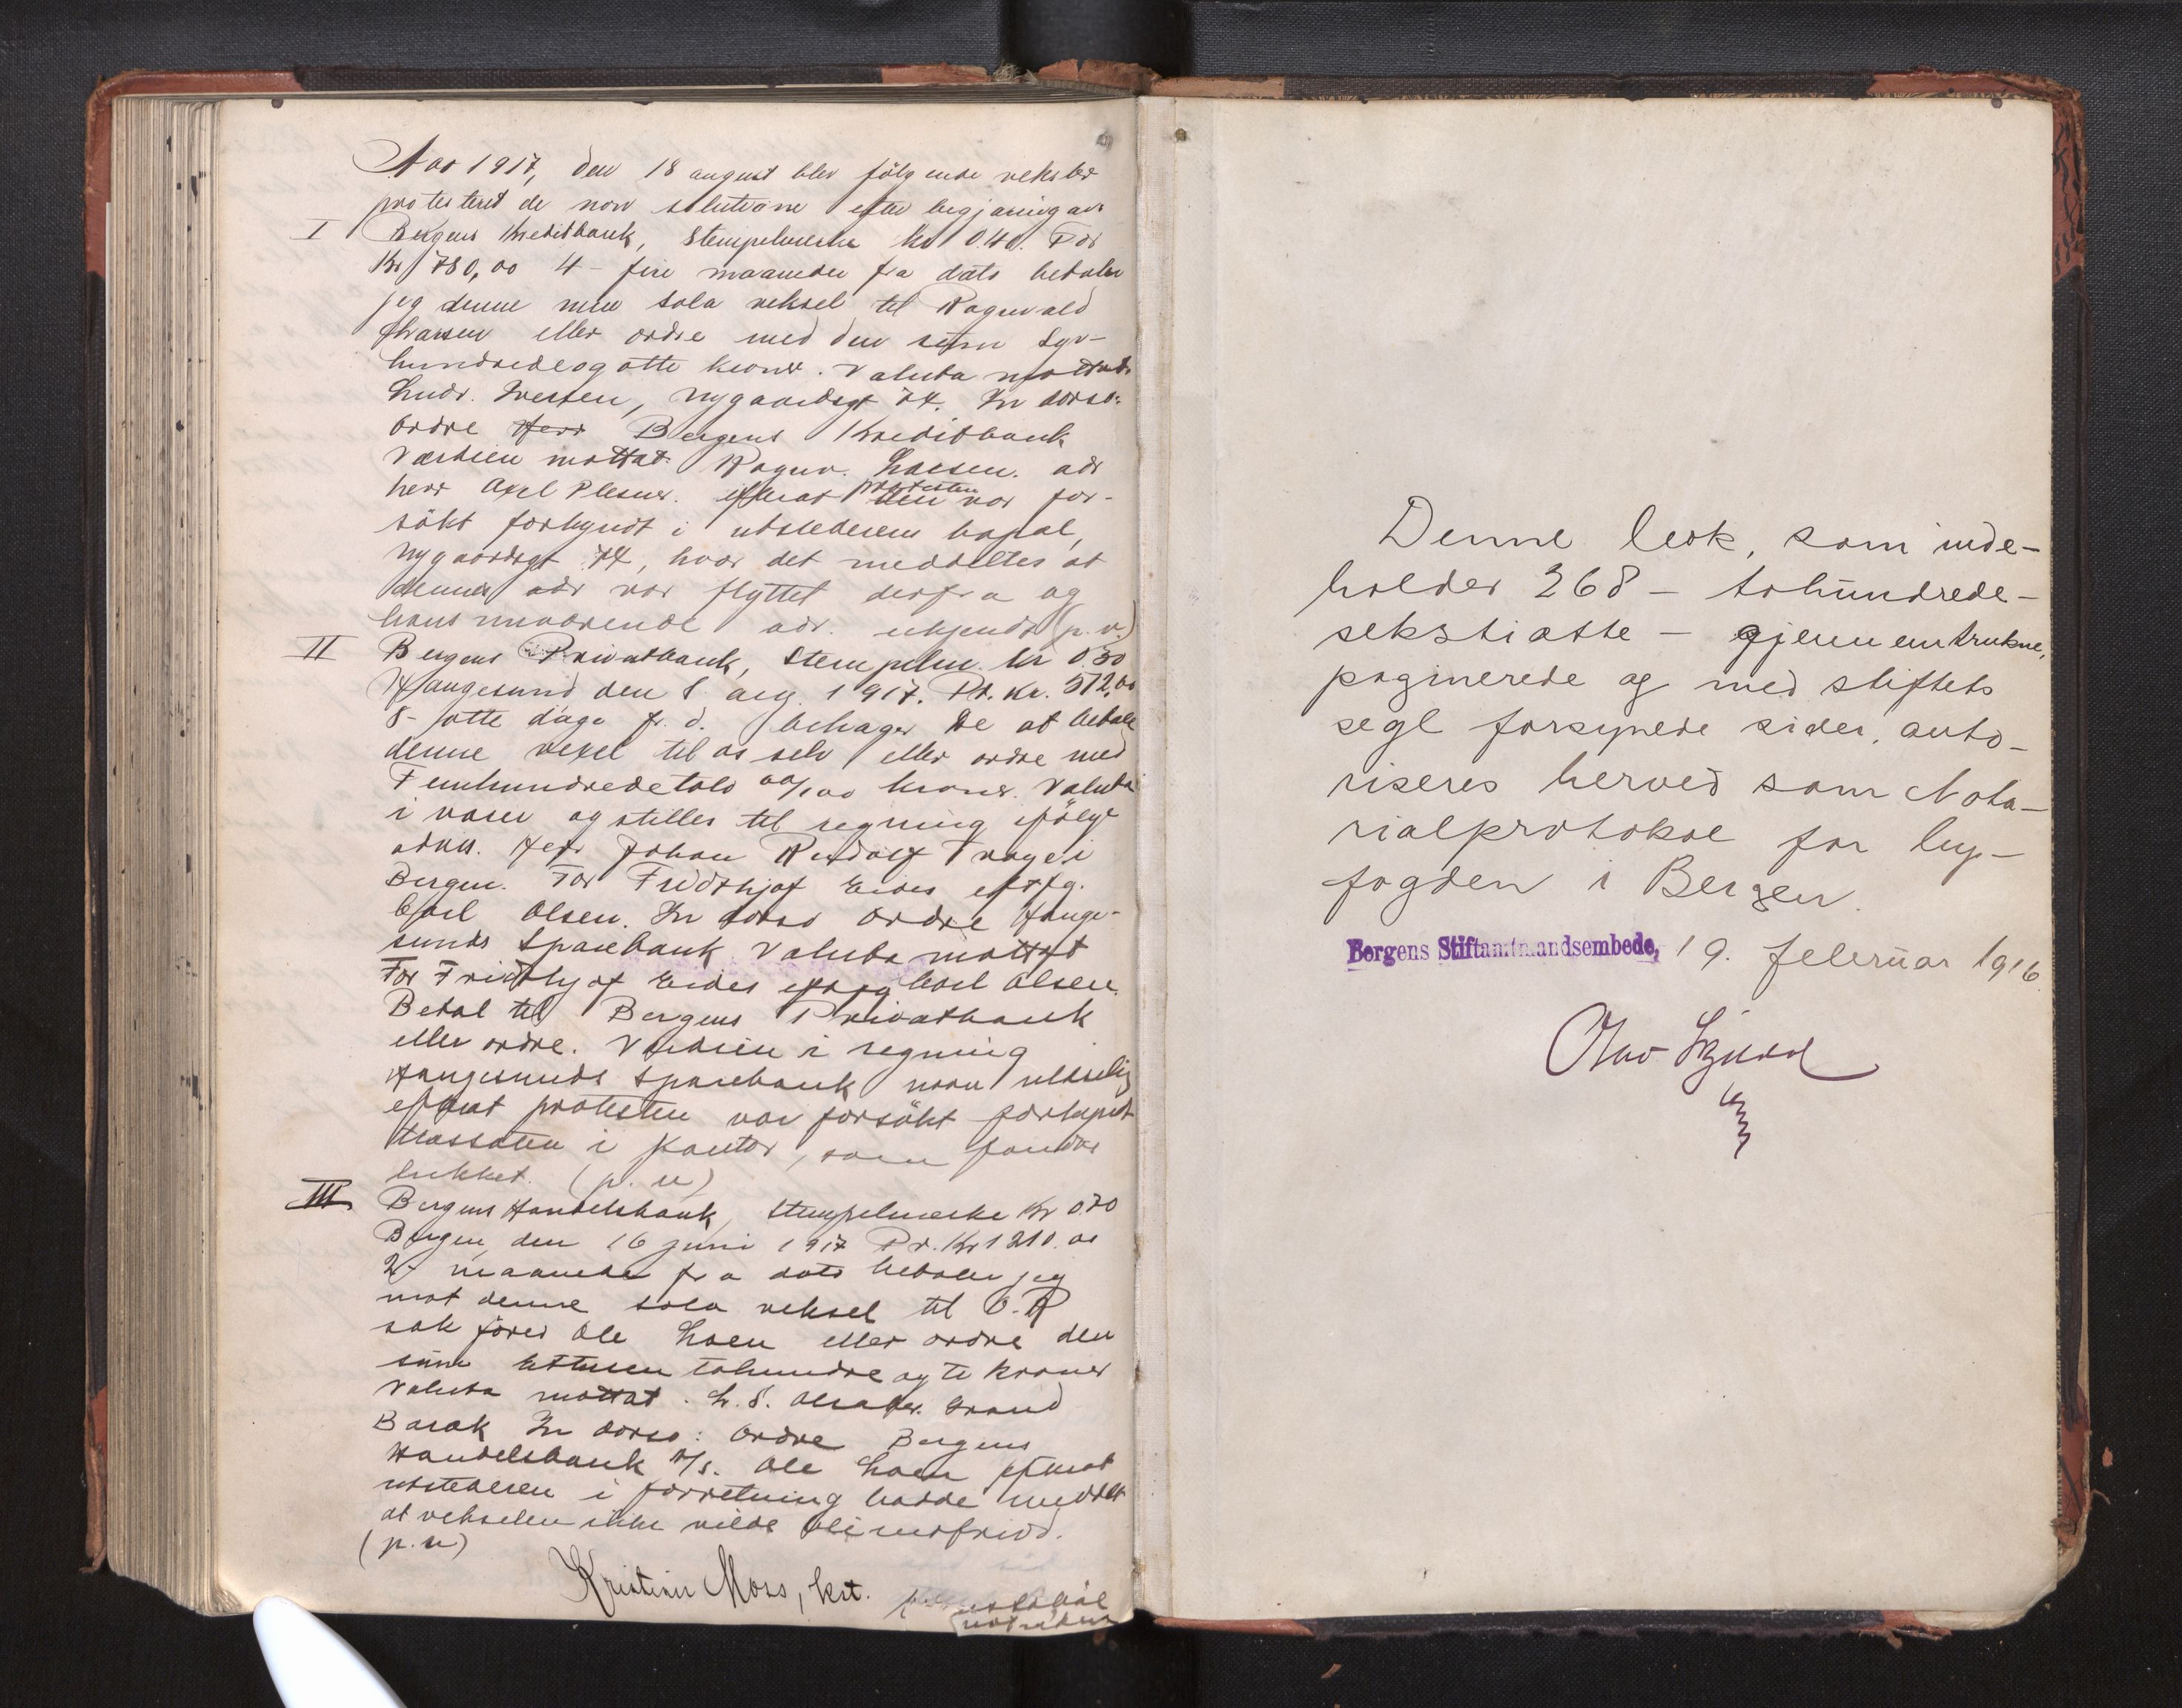 Aar 1917, den 18 august blev følgende veksler
protestert de non solutione efter begjæring av:
I Bergens Kreditbank, Stempelmerke kr 0.40. For
Kr 780,00 4 - fire maaneder fra dato betaler
jeg denne min sola veksel til Ragnvald
Larsen eller ordre med den sum Syv-
hundredeogotte kroner. Valuta mottat.
Ludv. Iversen, Nygaardsgt 74. In dorso:
Ordre Herr Bergens Kreditbank
Værdien mottat. Ragnv. Larsen. adr
herr Axel Plesner. efterat protesten den var for-
søkt forkyndt i utstederens bopæl,
Nygaardsgt 74, hvor det meddeltes at
denne var flyttet derfra og
hans nuværende adr. ukjendt (p. u.)
II Bergens Privatbank, Stempelm. kr 0.30
Haugesund den 8 aug. 1917. Pr. kr. 512,00
8 - otte dage fr. d. behager De at betale
denne vexel til os selv eller ordre med
Femhundredetolv 00/100 kroner. Valuta
i varer og stilles til regning ifølge
advis. Herr Johan Rudolf i
Bergen. For Fridthjof Eides eftfg.
Carl Olsen. In dorso Ordre Hauge-
sunds Sparebank Valuta mottat
For Fridthjof Eides eftfg Carl Olsen.
Betal til Bergens Privatbank
eller ordre. Værdien i regning
Haugesunds Sparebank
efterat protesten var forsøkt forkyndt
trassaten i kontor, som fandtes
lukket. (p. u)
III Bergens Handelsbank, Stempelmerke Kr 0.70
Bergen, den 16 juni 1917 Pr. Kr 1210.00
2 - maaneder fra dato betaler jeg
mot denne sola veksel til O. R
sakfører Ole Loen eller ordre den
sum Ettusen tohundre og ti kroner
Valuta mottat. L. S. Strand
Barak In dorso: Ordre Bergens
Handelsbank A/S. Ole Loen efterat
utstederen i forretning hadde meddelt
at vekselen ikke vilde bli indfridd.
(p. u)
Kristian Moss, kst.
Denne bok, som inde-
holder 268 - tohundrede-
sekstiotte - gjennemtrukne,
paginerede og med stiftets
segl forsynede sider, auto-
riseres herved som Nota-
rialprotokol for by-
fogden i Bergen.
Bergens Stiftamtmandsembede, 19. februar 1916.